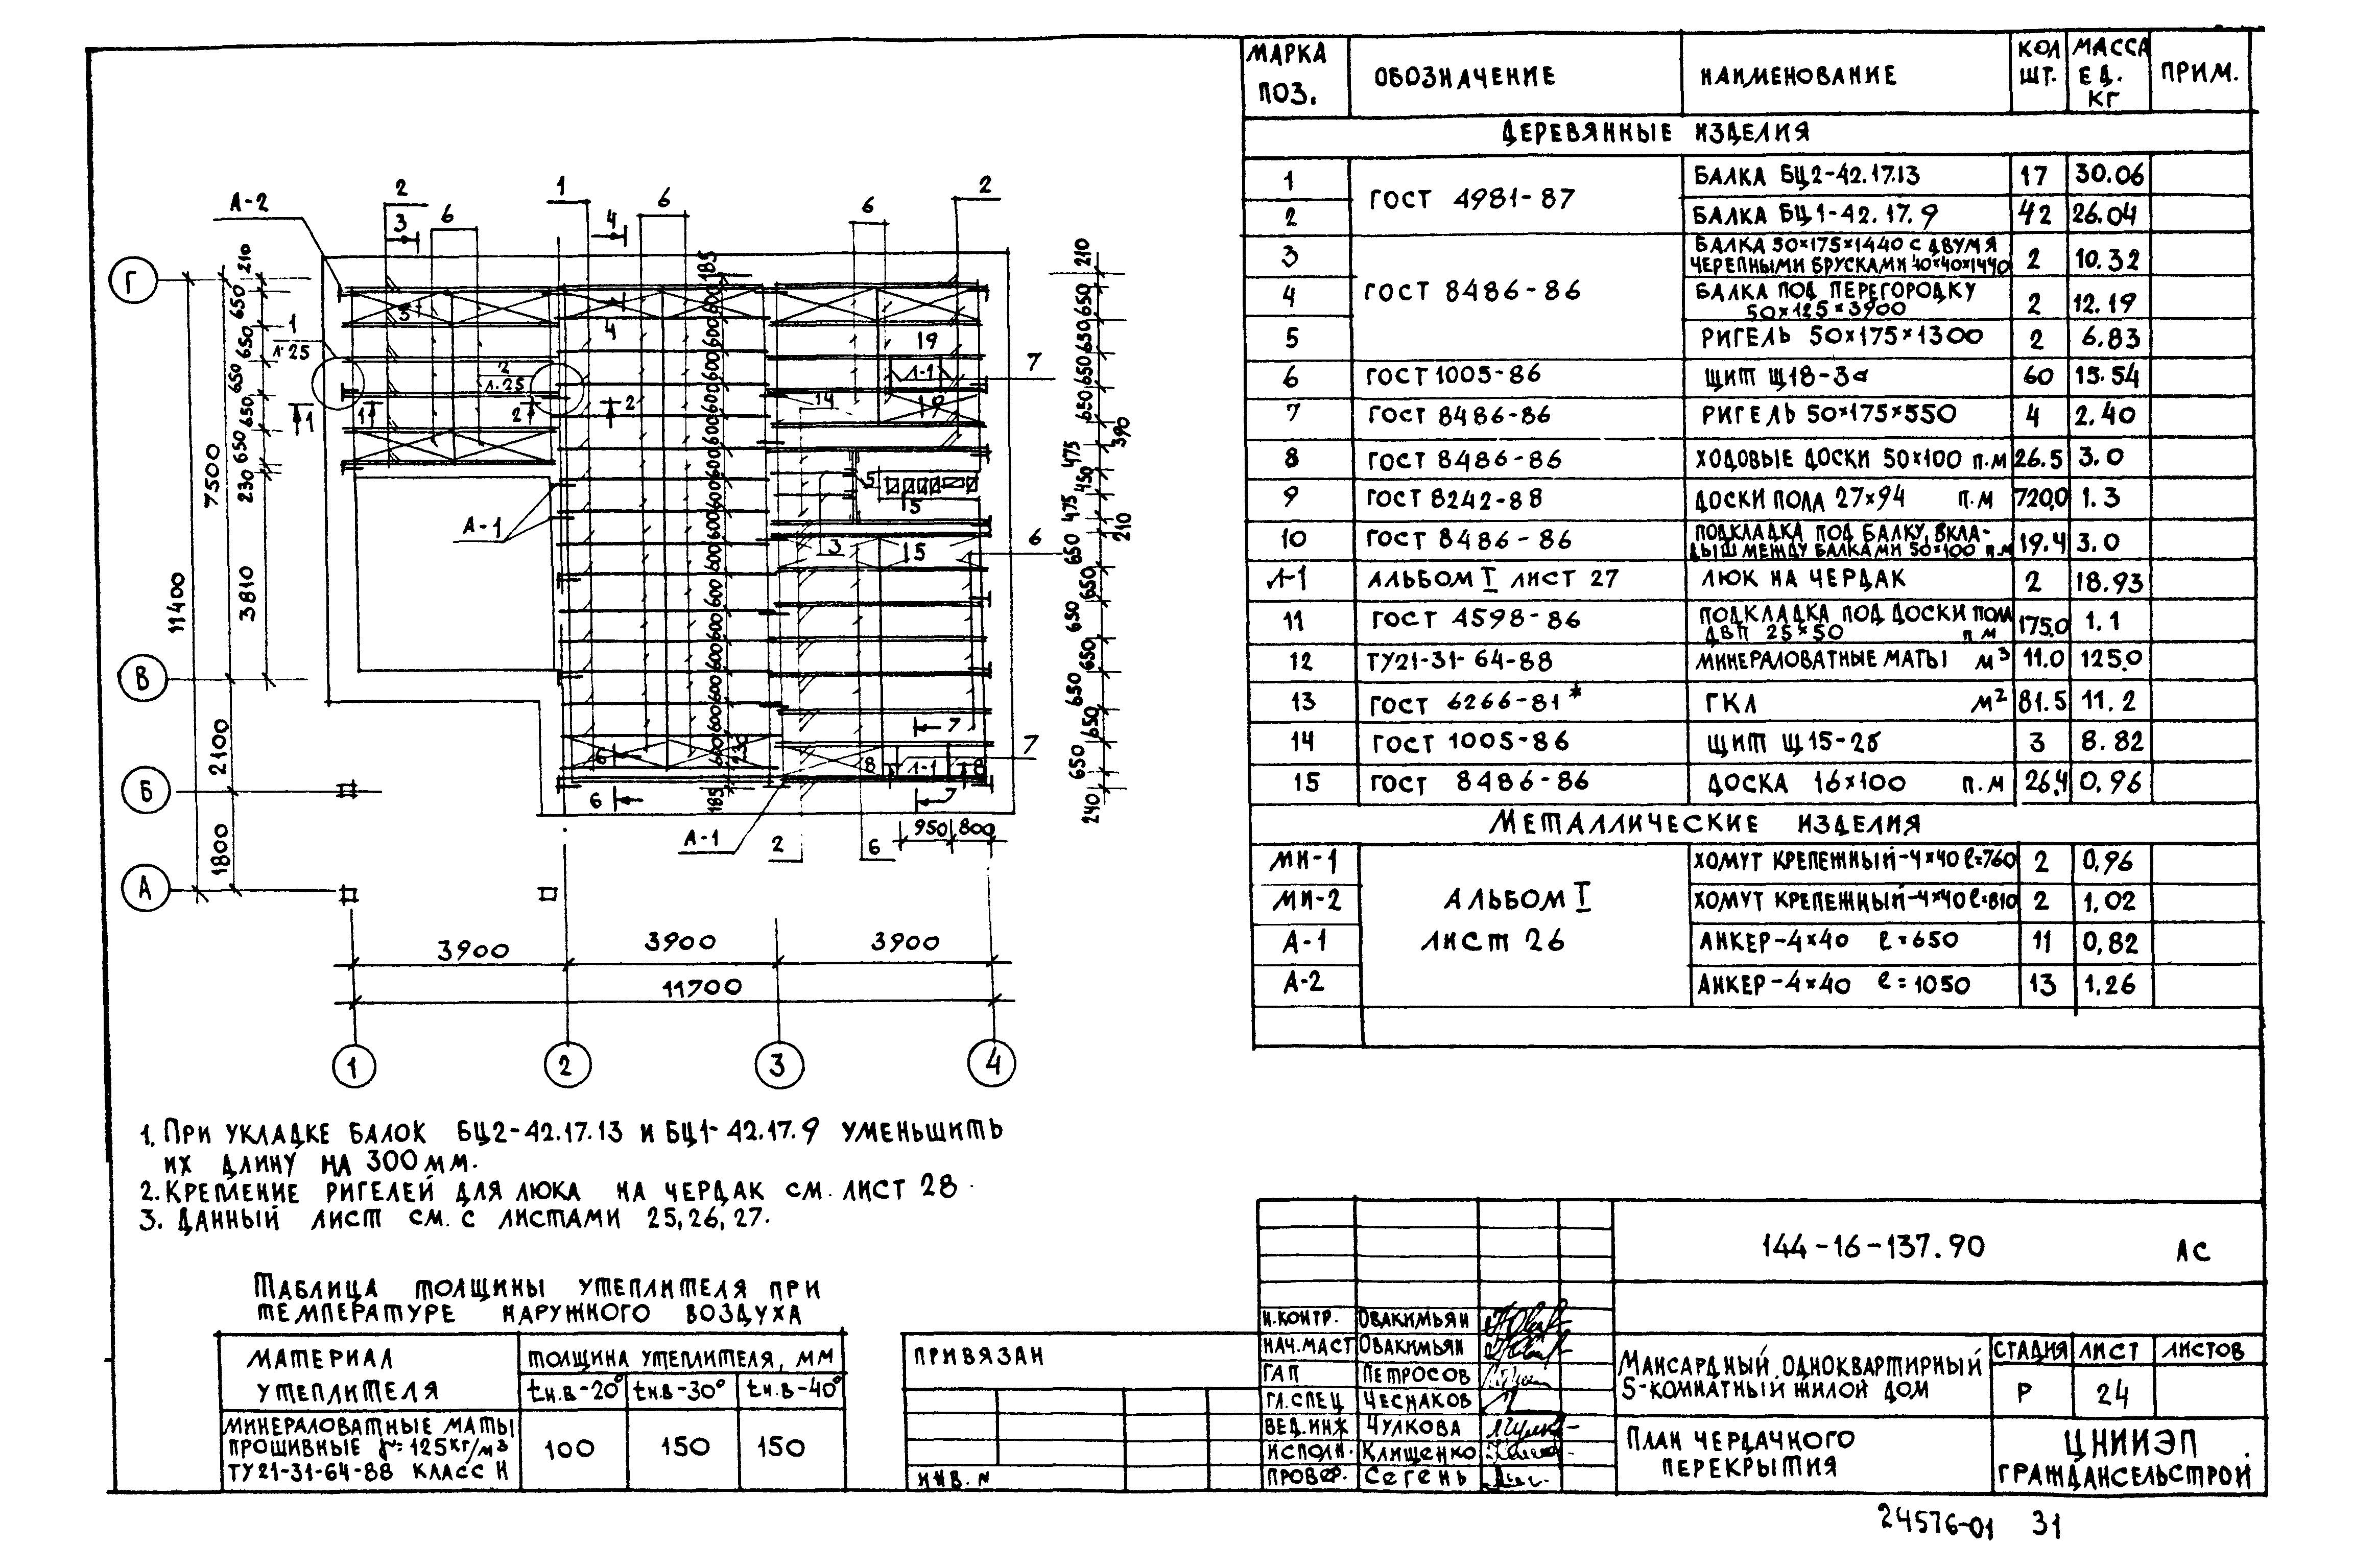 МАРКА ПОЗ. ОБОЗНАЧЕНИЕ НАИМЕНОВАНИЕ КОЛ ШТ. МАССА ЕД. КГ ПРИМ.
ДЕРЕВЯННЫЕ ИЗДЕЛИЯ
1 ГОСТ 4981-87 БАЛКА БЦ2-42.17.13 17 30.06
2 БАЛКА БЦ1-42.17.9 42 26.04
3 ГОСТ 8486-86 БАЛКА 50×175×1440 С ДВУМЯ
ЧЕРЕПНЫМИ БРУСКАМИ 40×40×1440 2 10.32
4 БАЛКА ПОД ПЕРЕГОРОДКУ
50×125×3900 2 12.19
5 РИГЕЛЬ 50×175×1300 2 6.83
6 ГОСТ 1005-86 ЩИТ Щ18-3а 60 15.54
7 ГОСТ 8486-86 РИГЕЛЬ 50×175×550 4 2.40
8 ГОСТ 8486-86 ХОДОВЫЕ ДОСКИ 50×100 П.М 26.5 3.0
9 ГОСТ 8242-88 ДОСКИ ПОЛА 27×94 П.М 720,0 1.3
10 ГОСТ 8486-86 ПОДКЛАДКА ПОД БАЛКУ, ВКЛА-
ДЫШ МЕЖДУ БАЛКАМИ 50×100 П.М 19.4 3.0
Л-1 АЛЬБОМ I ЛИСТ 27 ЛЮК НА ЧЕРДАК 2 18.93
11 ГОСТ 4598-86 ПОДКЛАДКА ПОД ДОСКИ ПОЛА
ДВП 25×50 П М 175.0 1.1
12 ТУ21-31-64-88 МИНЕРАЛОВАТНЫЕ МАТЫ М³ 11.0 125.0
13 ГОСТ 6266-81* ГКЛ М² 81.5 11.2
14 ГОСТ 1005-86 ЩИТ Щ15-2б 3 8.82
15 ГОСТ 8486-86 ДОСКА 16×100 П.М 26,4 0,96
МЕТАЛЛИЧЕСКИЕ ИЗДЕЛИЯ
МИ-1 АЛЬБОМ I ЛИСТ 26 ХОМУТ КРЕПЕЖНЫЙ-4×40 ℓ=760 2 0,96
МИ-2 ХОМУТ КРЕПЕЖНЫЙ-4×40 ℓ=810 2 1,02
А-1 АНКЕР-4×40 ℓ=650 11 0,82
А-2 АНКЕР-4×40 ℓ=1050 13 1,26
А-2 2 3 6 1 4 6 6 2
Г В Б А
210 650 650 650 650 650 230 3810
7500 11400 2100 1800
1 Л-25 2 Л.25
А-1
185 600 600 600 600 600 600 600 600 600 600 600 600 600 600 600 230 185
19 Л-1 14 19 7
5 15 3 15 6
210 650 650 650 650 390 475 450 475 210 650 650 650 650 650 650 650 240
6 6 7 7 8 Л-1 8 7
А-1 2 6 950 800
3900 3900 3900
11700
1 2 3 4
1. ПРИ УКЛАДКЕ БАЛОК БЦ2-42.17.13 И БЦ1-42.17.9 УМЕНЬШИТЬ
ИХ ДЛИНУ НА 300 ММ.
2. КРЕПЛЕНИЕ РИГЕЛЕЙ ДЛЯ ЛЮКА НА ЧЕРДАК СМ. ЛИСТ 28.
3. ДАННЫЙ ЛИСТ СМ. С ЛИСТАМИ 25, 26, 27.
ТАБЛИЦА ТОЛЩИНЫ УТЕПЛИТЕЛЯ ПРИ
ТЕМПЕРАТУРЕ НАРУЖНОГО ВОЗДУХА
МАТЕРИАЛ УТЕПЛИТЕЛЯ ТОЛЩИНА УТЕПЛИТЕЛЯ, ММ
tн.в-20° tн.в-30° tн.в-40°
МИНЕРАЛОВАТНЫЕ МАТЫ
ПРОШИВНЫЕ γ=125КГ/М³ 100 150 150
ТУ21-31-64-88 КЛАСС Н
ПРИВЯЗАН
ИНВ. N
144-16-137.90 АС
Н.КОНТР. ОВАКИМЬЯН
НАЧ.МАСТ ОВАКИМЬЯН
ГАП ПЕТРОСОВ
ГЛ.СПЕЦ ЧЕСНАКОВ
ВЕД.ИНЖ ЧУЛКОВА
ИСПОЛН. КЛИЩЕНКО
ПРОВЕР. СЕГЕНЬ
МАНСАРДНЫЙ ОДНОКВАРТИРНЫЙ
5-КОМНАТНЫЙ ЖИЛОЙ ДОМ
СТАДИЯ ЛИСТ ЛИСТОВ
Р 24
ПЛАН ЧЕРДАЧНОГО
ПЕРЕКРЫТИЯ
ЦНИИЭП
ГРАЖДАНСЕЛЬСТРОЙ
24576-01 31